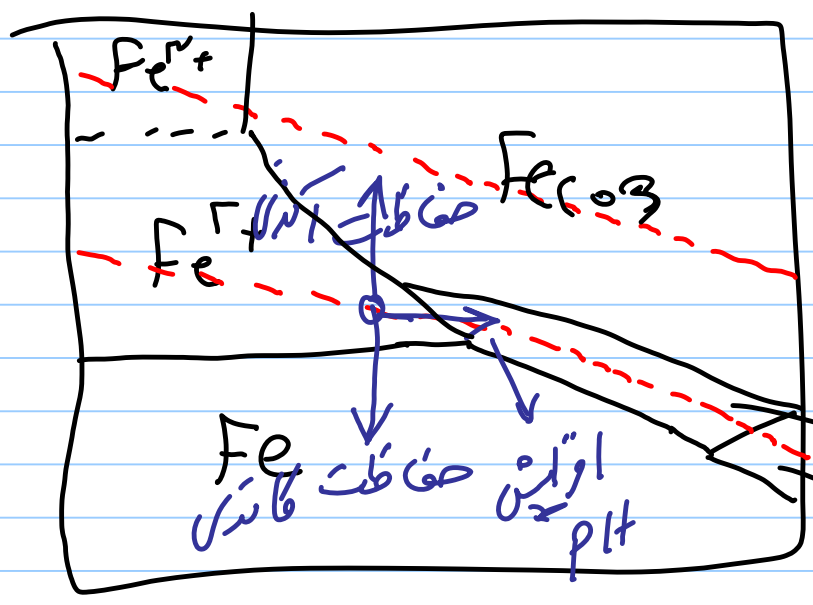 Fe۳+
FeCO3
حفاظت آندی
Fe۲+
Fe
حفاظت کاتدی
افزایش
pH